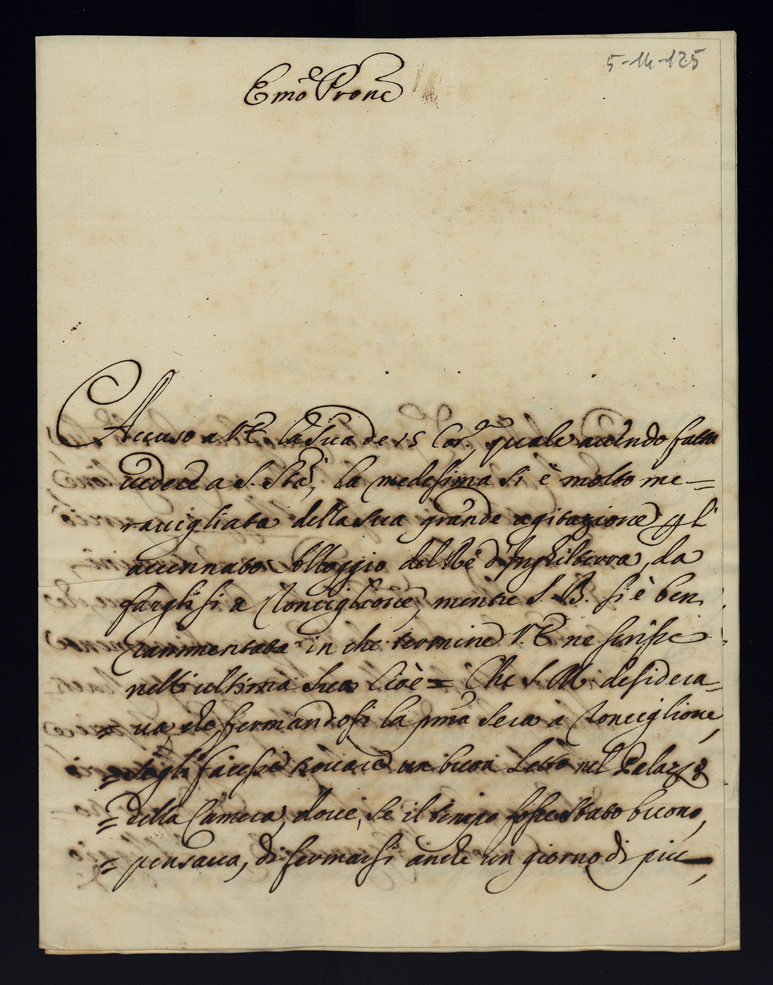 5-14-125
Emo Prone
Accuso a V.E. la Sua de 15 Cor.e, quale avendo fatta
vedere a S. Sta, la medesima si è molto me=
ravigliata della sua grande agitazione pl
accennato Alloggio del Rè d'Inghilterra, da
farglisi a Ronciglione, mentre S. B. si è ben
rammentata in che termine V.E. ne scrisse
nell'ultima Sua Cioè = Che S. M. desidera=
= va, che fermandosi la pma Sera a Ronciglione,
= Segli facesse trovare un buon Letto nel Palazzo
= della Camera, dove, se il tempo fosse stato buono,
= pensava, di fermarsi anche un giorno di più,